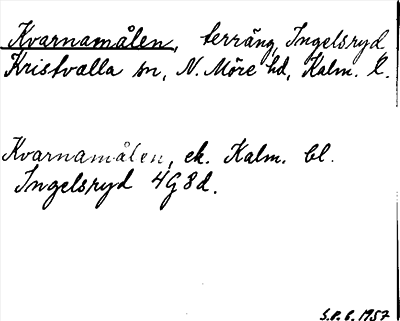 Kvarnamålen, terräng, Ingelsryd
Kristvalla sn, N. Möre hd, Kalm. l.
Kvarnamålen, ek. Kalm. bl.
Ingelsryd 4G8d.
S.P.B. 1957